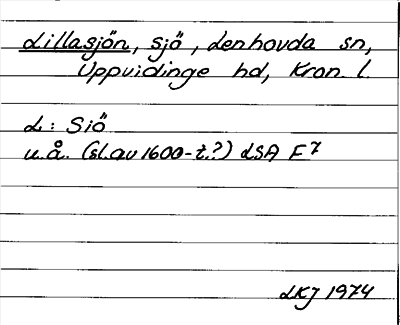 Lillasjön, sjö, Lenhovda sn,
Uppvidinge hd, Kron. l.
L: Siö
u.å. (sl. av 1600-t.?) LSA F7
LKJ 1974